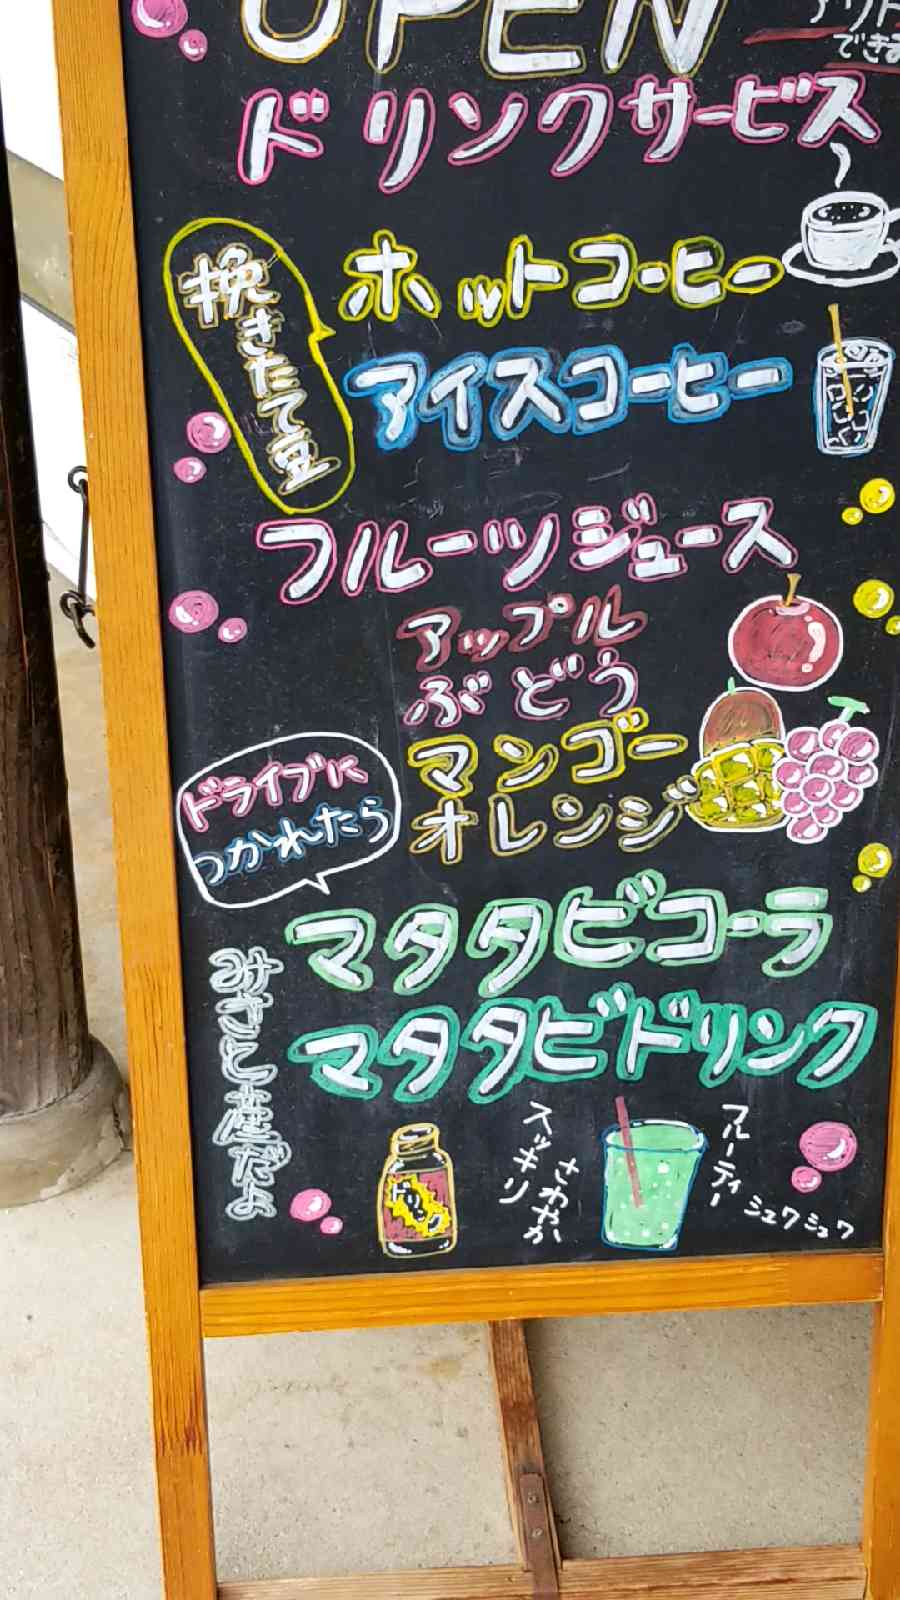 OPEN
できま
ドリンクサービス
挽きたて豆
ホットコーヒー
アイスコーヒー
フルーツジュース
アップル
ぶどう
マンゴー
オレンジ
ドライブに
つかれたら
マタタビコーラ
マタタビドリンク
みさと産だよ
ドリンク
スッキリ
さわやか
フルーティー
シュワシュワ